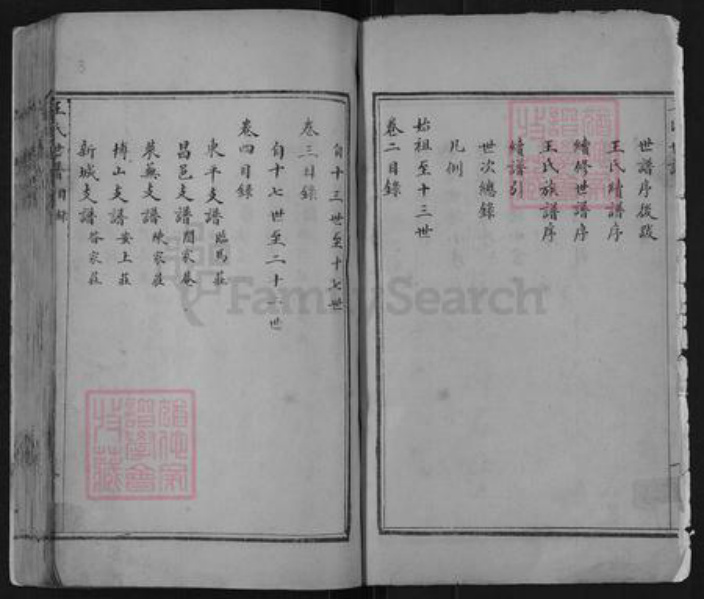 世譜序後跋
王氏續譜序
續修世譜序
王氏族譜序
續譜引
世次總錄
凡例
卷二目錄
始祖至十三世
自十三世至十七世
卷三目錄
自十七世至二十一世
卷四目錄
東平支譜 臨馬莊
昌邑支譜 閻家巷
萊蕪支譜 陳家莊
博山支譜 安上莊
新城支譜 答家莊
王氏世譜 目錄
FamilySearch
3